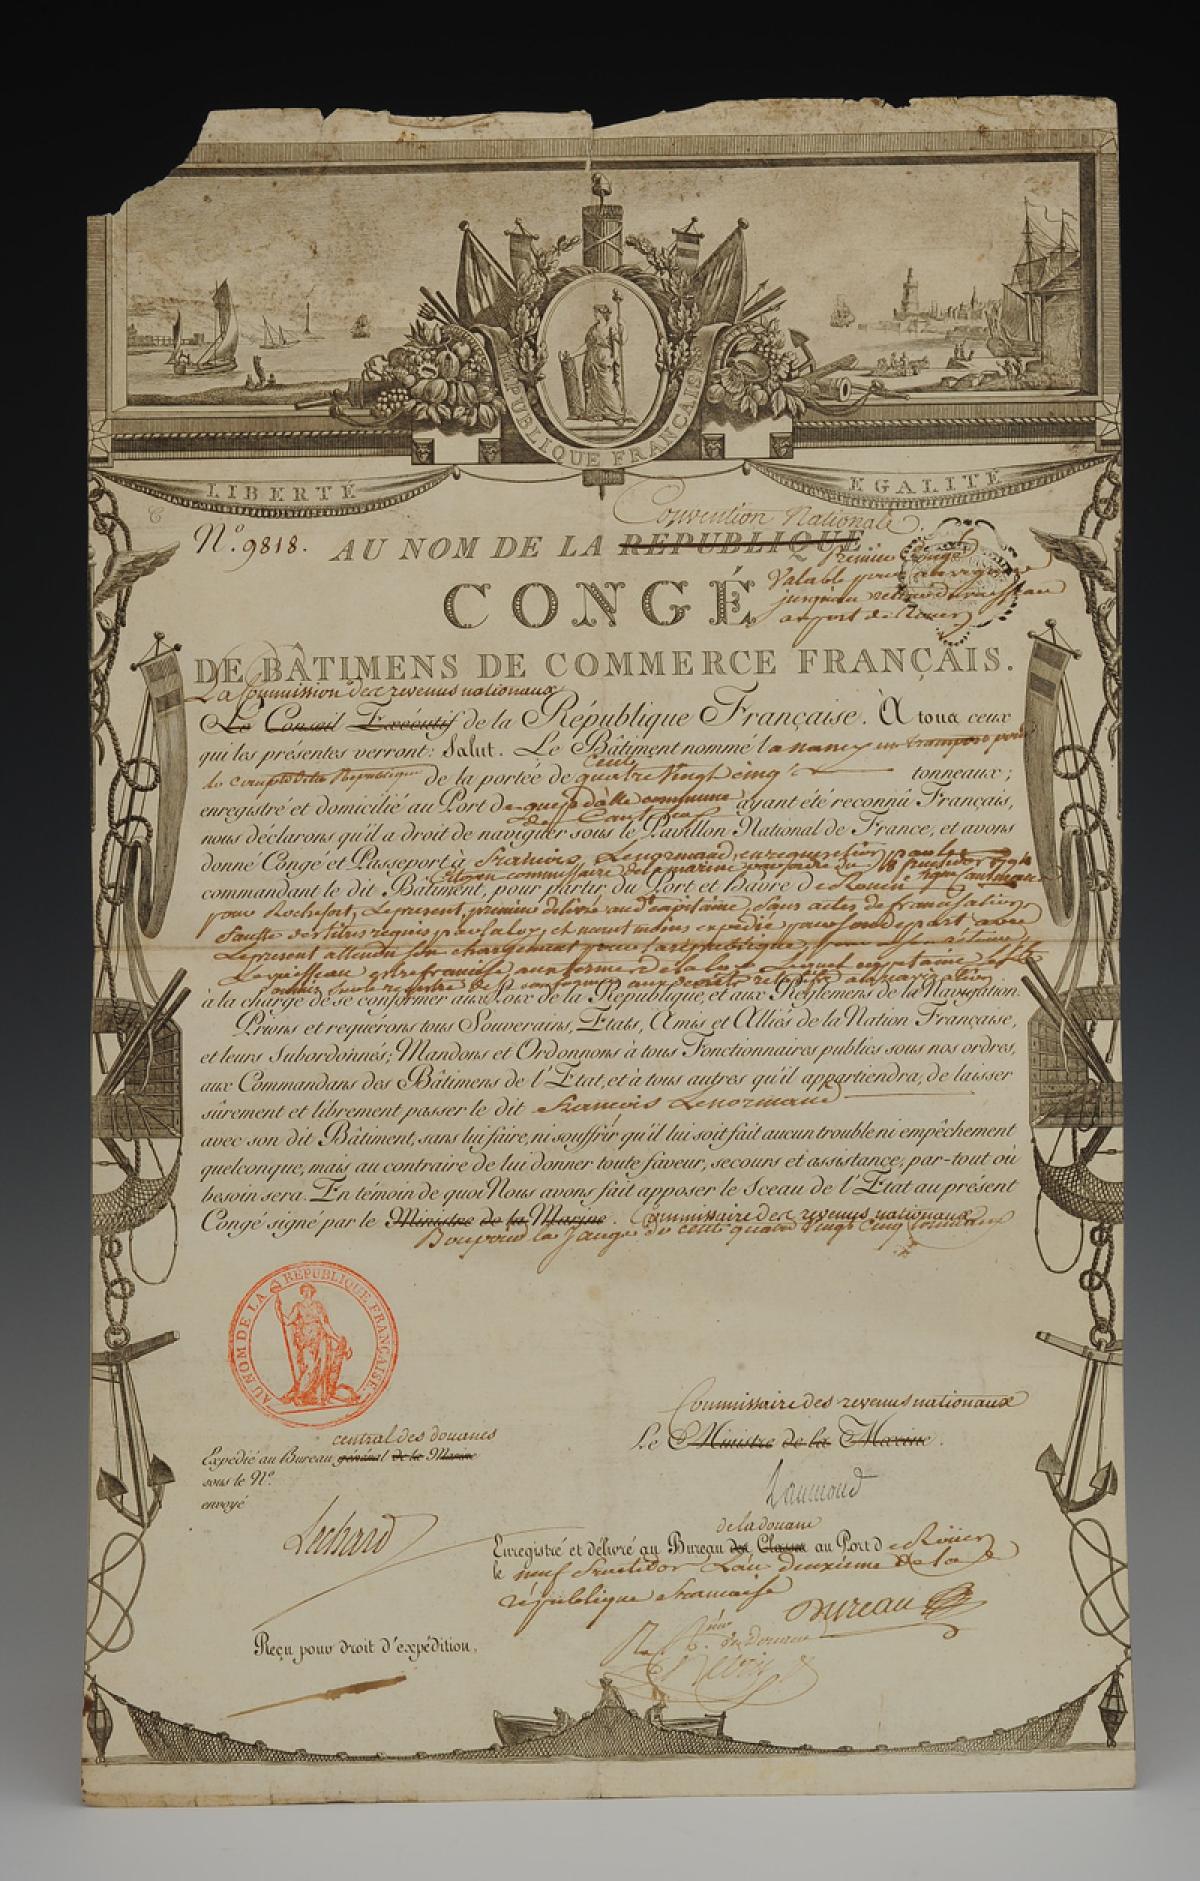 RÉPUBLIQUE FRANÇAISE
LIBERTÉ
EGALITÉ
Convention Nationale
N.° 9818. AU NOM DE LA REPUBLIQUE.
premier Congé
Valable pour un voyage
jusqu'au retour du vaisseau
au port de Rouen
CONGÉ
DE BÂTIMENS DE COMMERCE FRANÇAIS.
La Commission des revenus nationaux
Le Conseil Exécutif de la République Française. À tous ceux
qui les présentes verront: Salut. Le Bâtiment nommé la nancy un transport pour
le compte de la République de la portée de Cent quatre vingt cinq tonneaux;
enregistré et domicilié au Port de ayant été reconnû Français,
nous déclarons qu'il a droit de naviguer sous le Pavillon National de France, et avons
donné Congé et Passeport à François Lenormand, en requisition par le
Citoyen commissaire de la marine 1794
commandant le dit Bâtiment, pour partir du Port et hâvre de Rouen
pour Rochefort, Le present premier delivré au dt capitaine, sans actes de francisation
faute des titres requis par la loy, et neanmoins expedié pour son depart avec
Le present attendu son chargement pour la republique,
Le vaisseau au terme de la loi Lequel capitaine
à la charge de se conformer aux Loix de la République, et aux Règlemens de la Navigation.
Prions et requérons tous Souverains, États, Amis et Alliés de la Nation Française,
et leurs Subordonnés; Mandons et Ordonnons à tous Fonctionnaires publics sous nos ordres,
aux Commandans des Bâtimens de l'État, et à tous autres qu'il appartiendra, de laisser
sûrement et librement passer le dit François Lenormand
avec son dit Bâtiment, sans lui faire, ni souffrir qu'il lui soit fait aucun trouble ni empêchement
quelconque, mais au contraire de lui donner toute faveur, secours et assistance, par-tout où
besoin sera. En témoin de quoi Nous avons fait apposer le Sceau de l'État au présent
Congé signé par le Ministre de la Marine. Commissaire des revenus nationaux
Bon pour la Jauge de cent quatre vingt cinq tonneaux
AU NOM DE LA REPUBLIQUE FRANÇAISE.
Commissaire des revenus nationaux
Le Ministre de la Marine.
central des douanes
Expédié au Bureau général de la Marine
sous le N°.
envoyé
Laumond
Lechard
de la douane
Enregistré et délivré au Bureau des Classes au Port de Roüen
le neuf fructidor L'an deuxieme de la
république francaise
Dureau
Reçu pour droit d'expédition,